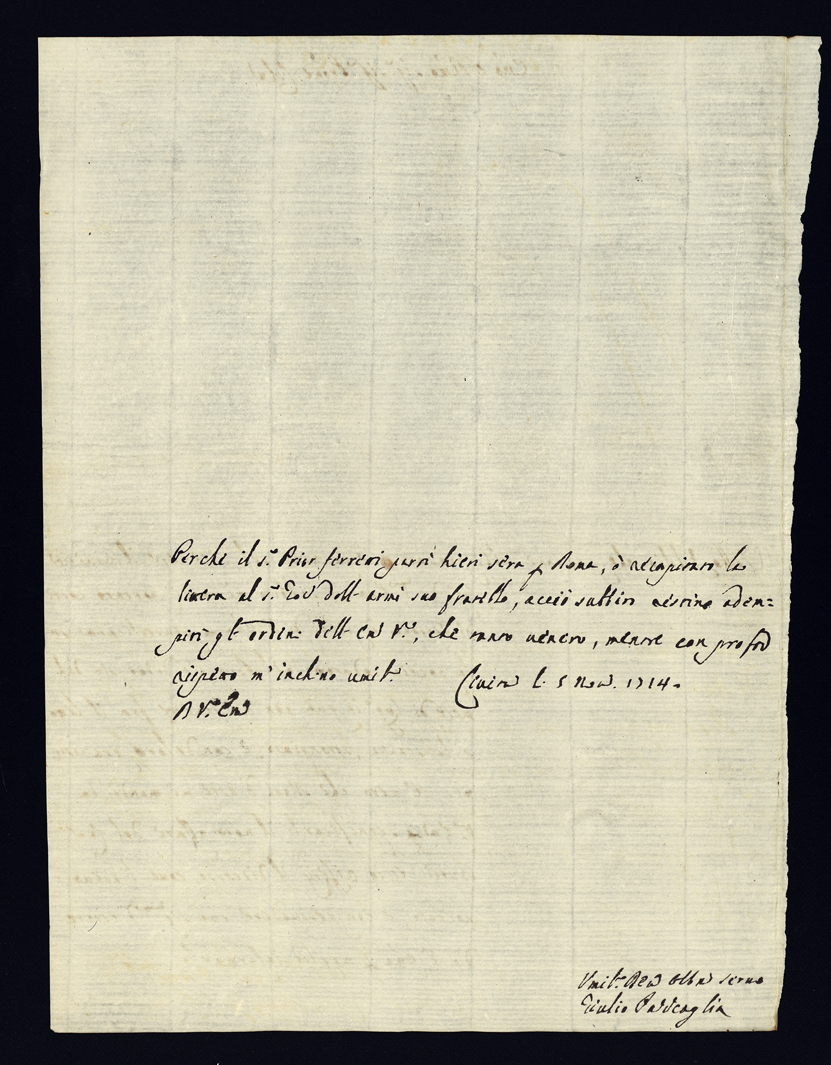 Perche il s.r Prior ferreri partì hieri sera p Roma, ò recapitato la
lettera al s.r Gov dell armi suo fratello, acciò subbito restino adem=
piti gl ordini dell Em V.a, che tanto venero, mentre con profod
rispetto m'inchino umil.te l. 5 Nov. 1714.
A V.a Em
Umil.mo Dev Obb servo
Giulio